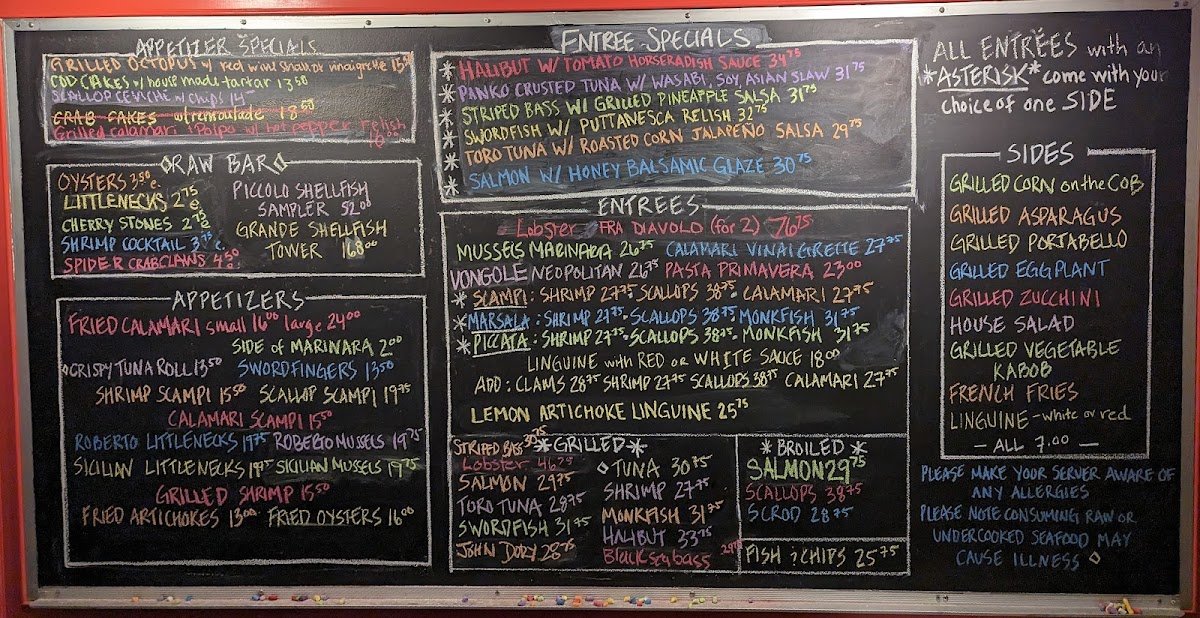 APPETIZER SPECIALS
GRILLED OCTOPUS w/ red wine shallot vinaigrette 15.50
COD CAKES w/ house made tartar 13.50
SCALLOP CEVICHE w/ chips 14
CRAB CAKES w/ remoulade 18.50
Grilled calamari + Polpo w/ hot pepper relish
16.00
◊RAW BAR◊
OYSTERS 3.50 e.
LITTLENECKS 2.75 e.
CHERRY STONES 2.75 e.
SHRIMP COCKTAIL 3.75 e.
SPIDER CRAB CLAWS 4.50 e.
PICCOLO SHELLFISH
SAMPLER 52.00
GRANDE SHELLFISH
TOWER 168.00
APPETIZERS
FRIED CALAMARI small 16.00 large 24.00
SIDE of MARINARA 2.00
◊CRISPY TUNA ROLL 13.50 SWORDFINGERS 13.50
SHRIMP SCAMPI 15.50 SCALLOP SCAMPI 19.75
CALAMARI SCAMPI 15.50
ROBERTO LITTLENECKS 19.75 ROBERTO MUSSELS 19.75
SICILIAN LITTLENECKS 19.75 SICILIAN MUSSELS 19.75
GRILLED SHRIMP 15.50
FRIED ARTICHOKES 13.00 FRIED OYSTERS 16.00
ENTREE SPECIALS
* HALIBUT W/ TOMATO HORSERADISH SAUCE 34.75
* PANKO CRUSTED TUNA W/ WASABI, SOY ASIAN SLAW 31.75
* STRIPED BASS W/ GRILLED PINEAPPLE SALSA 31.75
* SWORDFISH W/ PUTTANESCA RELISH 32.75
* TORO TUNA W/ ROASTED CORN JALAPEÑO SALSA 29.75
* SALMON W/ HONEY BALSAMIC GLAZE 30.75
ENTREES
Lobster FRA DIAVOLO (for 2) 76.75
MUSSELS MARINARA 26.75 CALAMARI VINAIGRETTE 27.75
VONGOLE NEOPOLITAN 26.75 PASTA PRIMAVERA 23.00
* SCAMPI: SHRIMP 27.75 SCALLOPS 38.75 CALAMARI 27.75
* MARSALA: SHRIMP 27.75 SCALLOPS 38.75 MONKFISH 31.75
* PICCATA: SHRIMP 27.75 SCALLOPS 38.75 MONKFISH 31.75
LINGUINE with RED or WHITE SAUCE 18.00
ADD: CLAMS 28.75 SHRIMP 27.75 SCALLOPS 38.75 CALAMARI 27.75
LEMON ARTICHOKE LINGUINE 25.75
*GRILLED*
STRIPED BASS 30.75
Lobster 46.25
SALMON 29.75
TORO TUNA 28.75
SWORDFISH 31.75
JOHN DORY 28.75
◊TUNA 30.75
SHRIMP 27.75
MONKFISH 31.75
HALIBUT 33.75
Black sea bass 29.75
* BROILED *
SALMON 29.75
SCALLOPS 38.75
SCROD 28.75
FISH & CHIPS 25.75
ALL ENTRÉES with an
*ASTERISK* come with your
choice of one SIDE
SIDES
GRILLED CORN on the COB
GRILLED ASPARAGUS
GRILLED PORTABELLO
GRILLED EGGPLANT
GRILLED ZUCCHINI
HOUSE SALAD
GRILLED VEGETABLE
KABOB
FRENCH FRIES
LINGUINE - white or red
— ALL 7.00 —
PLEASE MAKE YOUR SERVER AWARE OF
ANY ALLERGIES
PLEASE NOTE CONSUMING RAW OR
UNDERCOOKED SEAFOOD MAY
CAUSE ILLNESS ◊